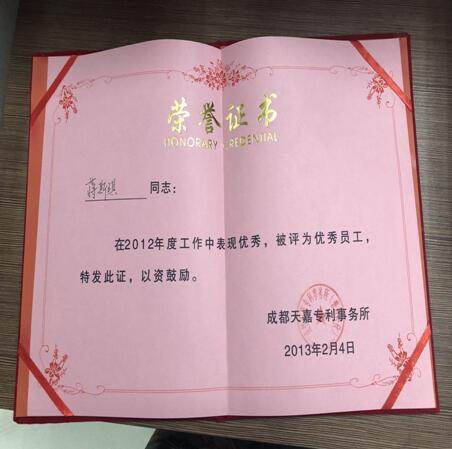 荣誉证书
HONORARY CREDENTIAL
蒋斯琪 同志：
在2012年度工作中表现优秀，被评为优秀员工，
特发此证，以资鼓励。
成都天嘉专利事务所
2013年2月4日